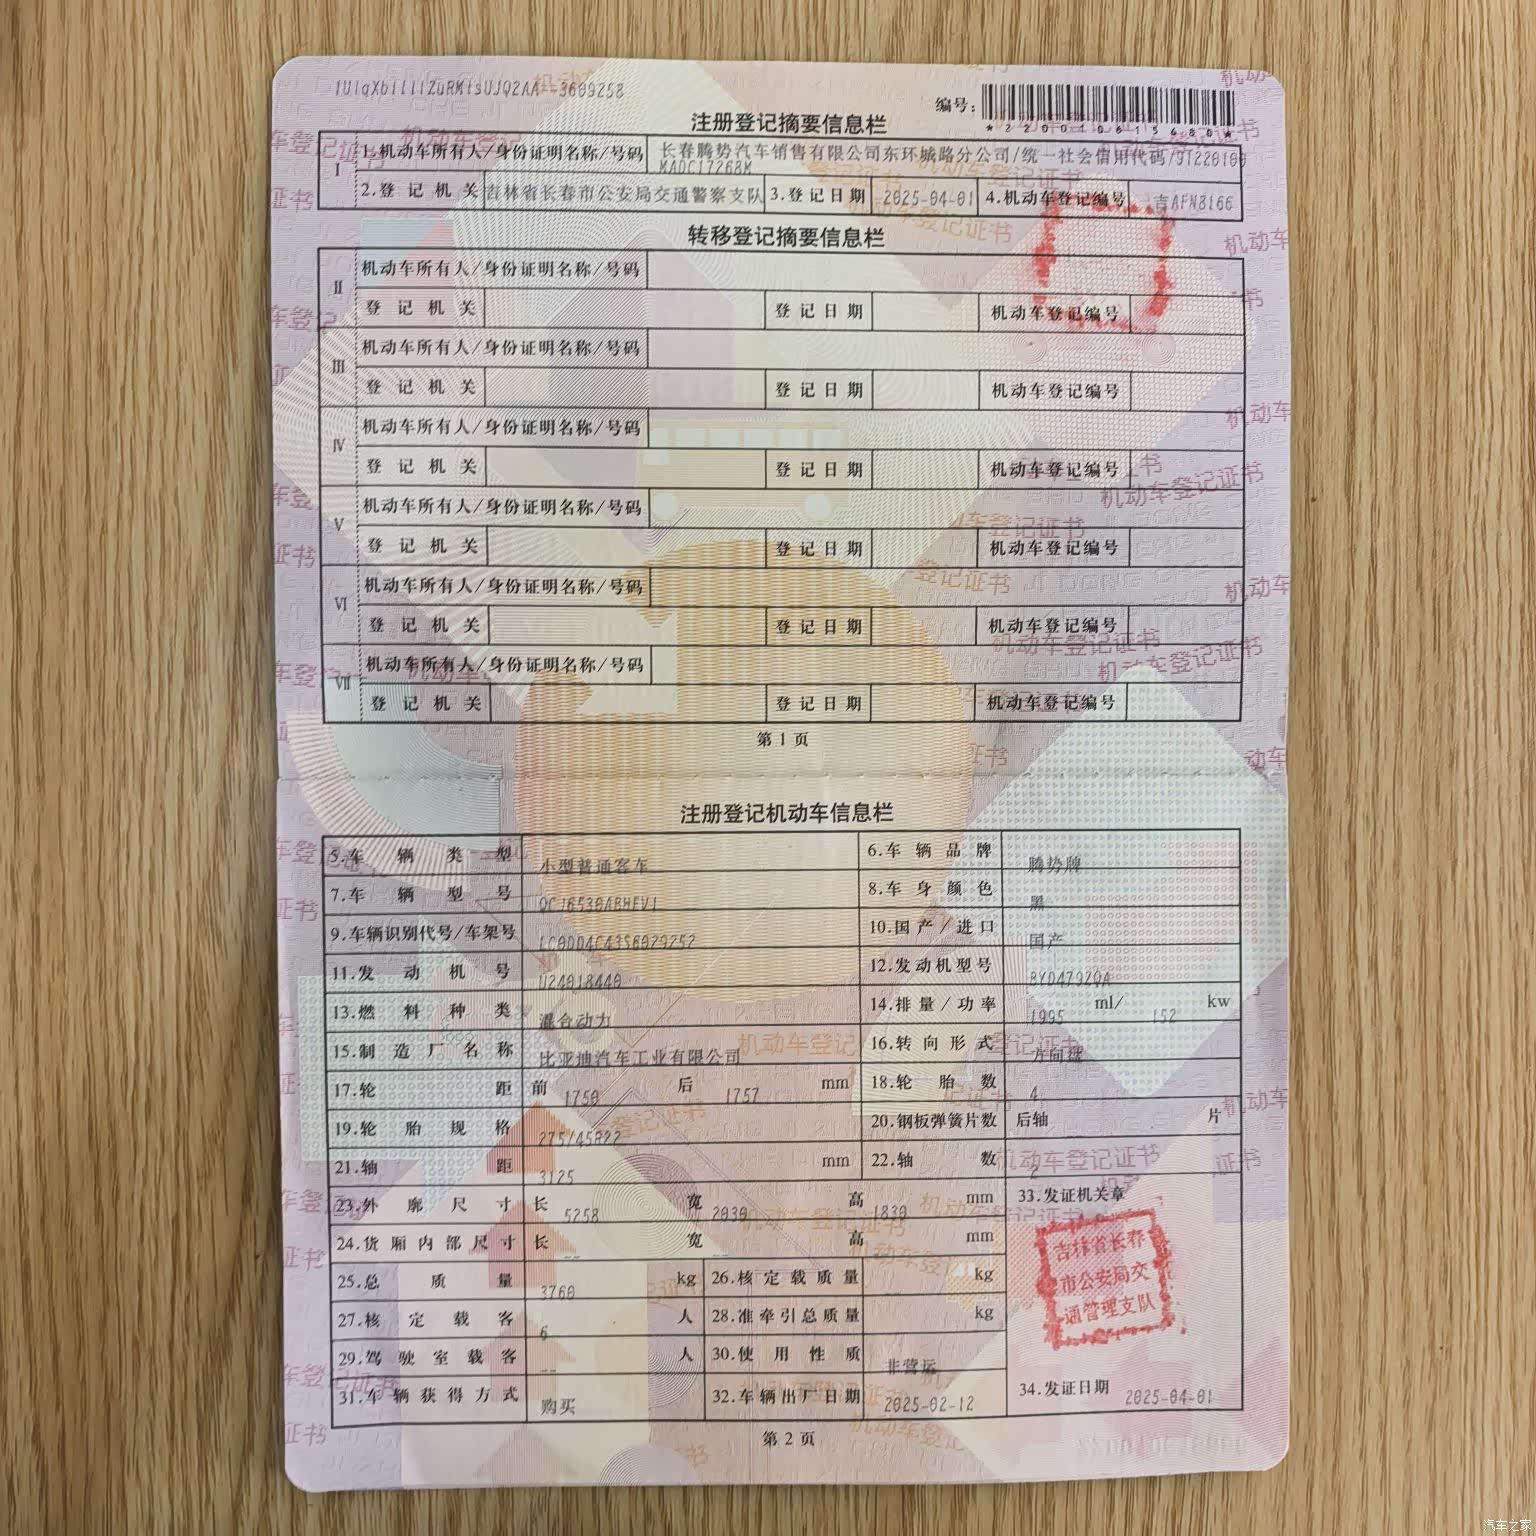 编号:
*220010615680*
注册登记摘要信息栏
I
1.机动车所有人/身份证明名称/号码 长春腾势汽车销售有限公司东环城路分公司/统一社会信用代码/91220100
MADC17268M
2.登记机关 吉林省长春市公安局交通警察支队 3.登记日期 2025-04-01 4.机动车登记编号 吉AFN8166
转移登记摘要信息栏
II
机动车所有人/身份证明名称/号码
登记机关 登记日期 机动车登记编号
III
机动车所有人/身份证明名称/号码
登记机关 登记日期 机动车登记编号
IV
机动车所有人/身份证明名称/号码
登记机关 登记日期 机动车登记编号
V
机动车所有人/身份证明名称/号码
登记机关 登记日期 机动车登记编号
VI
机动车所有人/身份证明名称/号码
登记机关 登记日期 机动车登记编号
VII
机动车所有人/身份证明名称/号码
登记机关 登记日期 机动车登记编号
第1页
注册登记机动车信息栏
5.车辆类型 小型普通客车 6.车辆品牌 腾势牌
7.车辆型号 QCJ6530ABHEV1 8.车身颜色 黑
9.车辆识别代号/车架号 LC0DD4C43S6029252 10.国产/进口 国产
11.发动机号 U24018440 12.发动机型号 BYD479ZQA
13.燃料种类 混合动力 14.排量/功率 1995 ml/ 152 kw
15.制造厂名称 比亚迪汽车工业有限公司 16.转向形式 方向盘
17.轮距 前 1750 后 1757 mm 18.轮胎数 4
19.轮胎规格 275/45R22 20.钢板弹簧片数 后轴 片
21.轴距 3125 mm 22.轴数 2
23.外廓尺寸 长 5258 宽 2030 高 1830 mm 33.发证机关章
24.货厢内部尺寸 长 -- 宽 -- 高 mm
25.总质量 3760 kg 26.核定载质量 kg
吉林省长春
市公安局交
通管理支队
27.核定载客 6 人 28.准牵引总质量 kg
29.驾驶室载客 -- 人 30.使用性质 非营运
31.车辆获得方式 购买 32.车辆出厂日期 2025-02-12 34.发证日期 2025-04-01
第2页
汽车之家